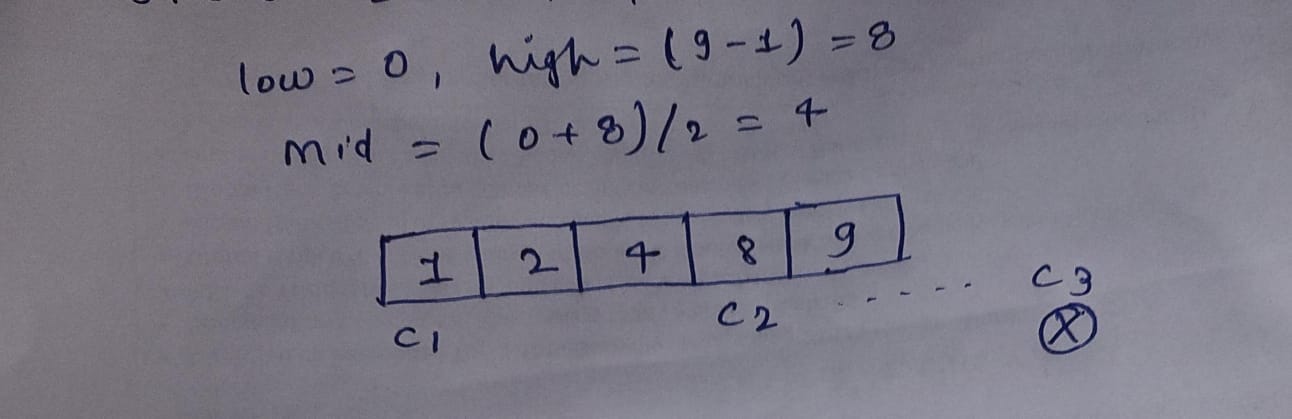 low = 0, high = (9-1) = 8
mid = (0+8)/2 = 4
1 2 4 8 9
C1 C2 ..... C3
X